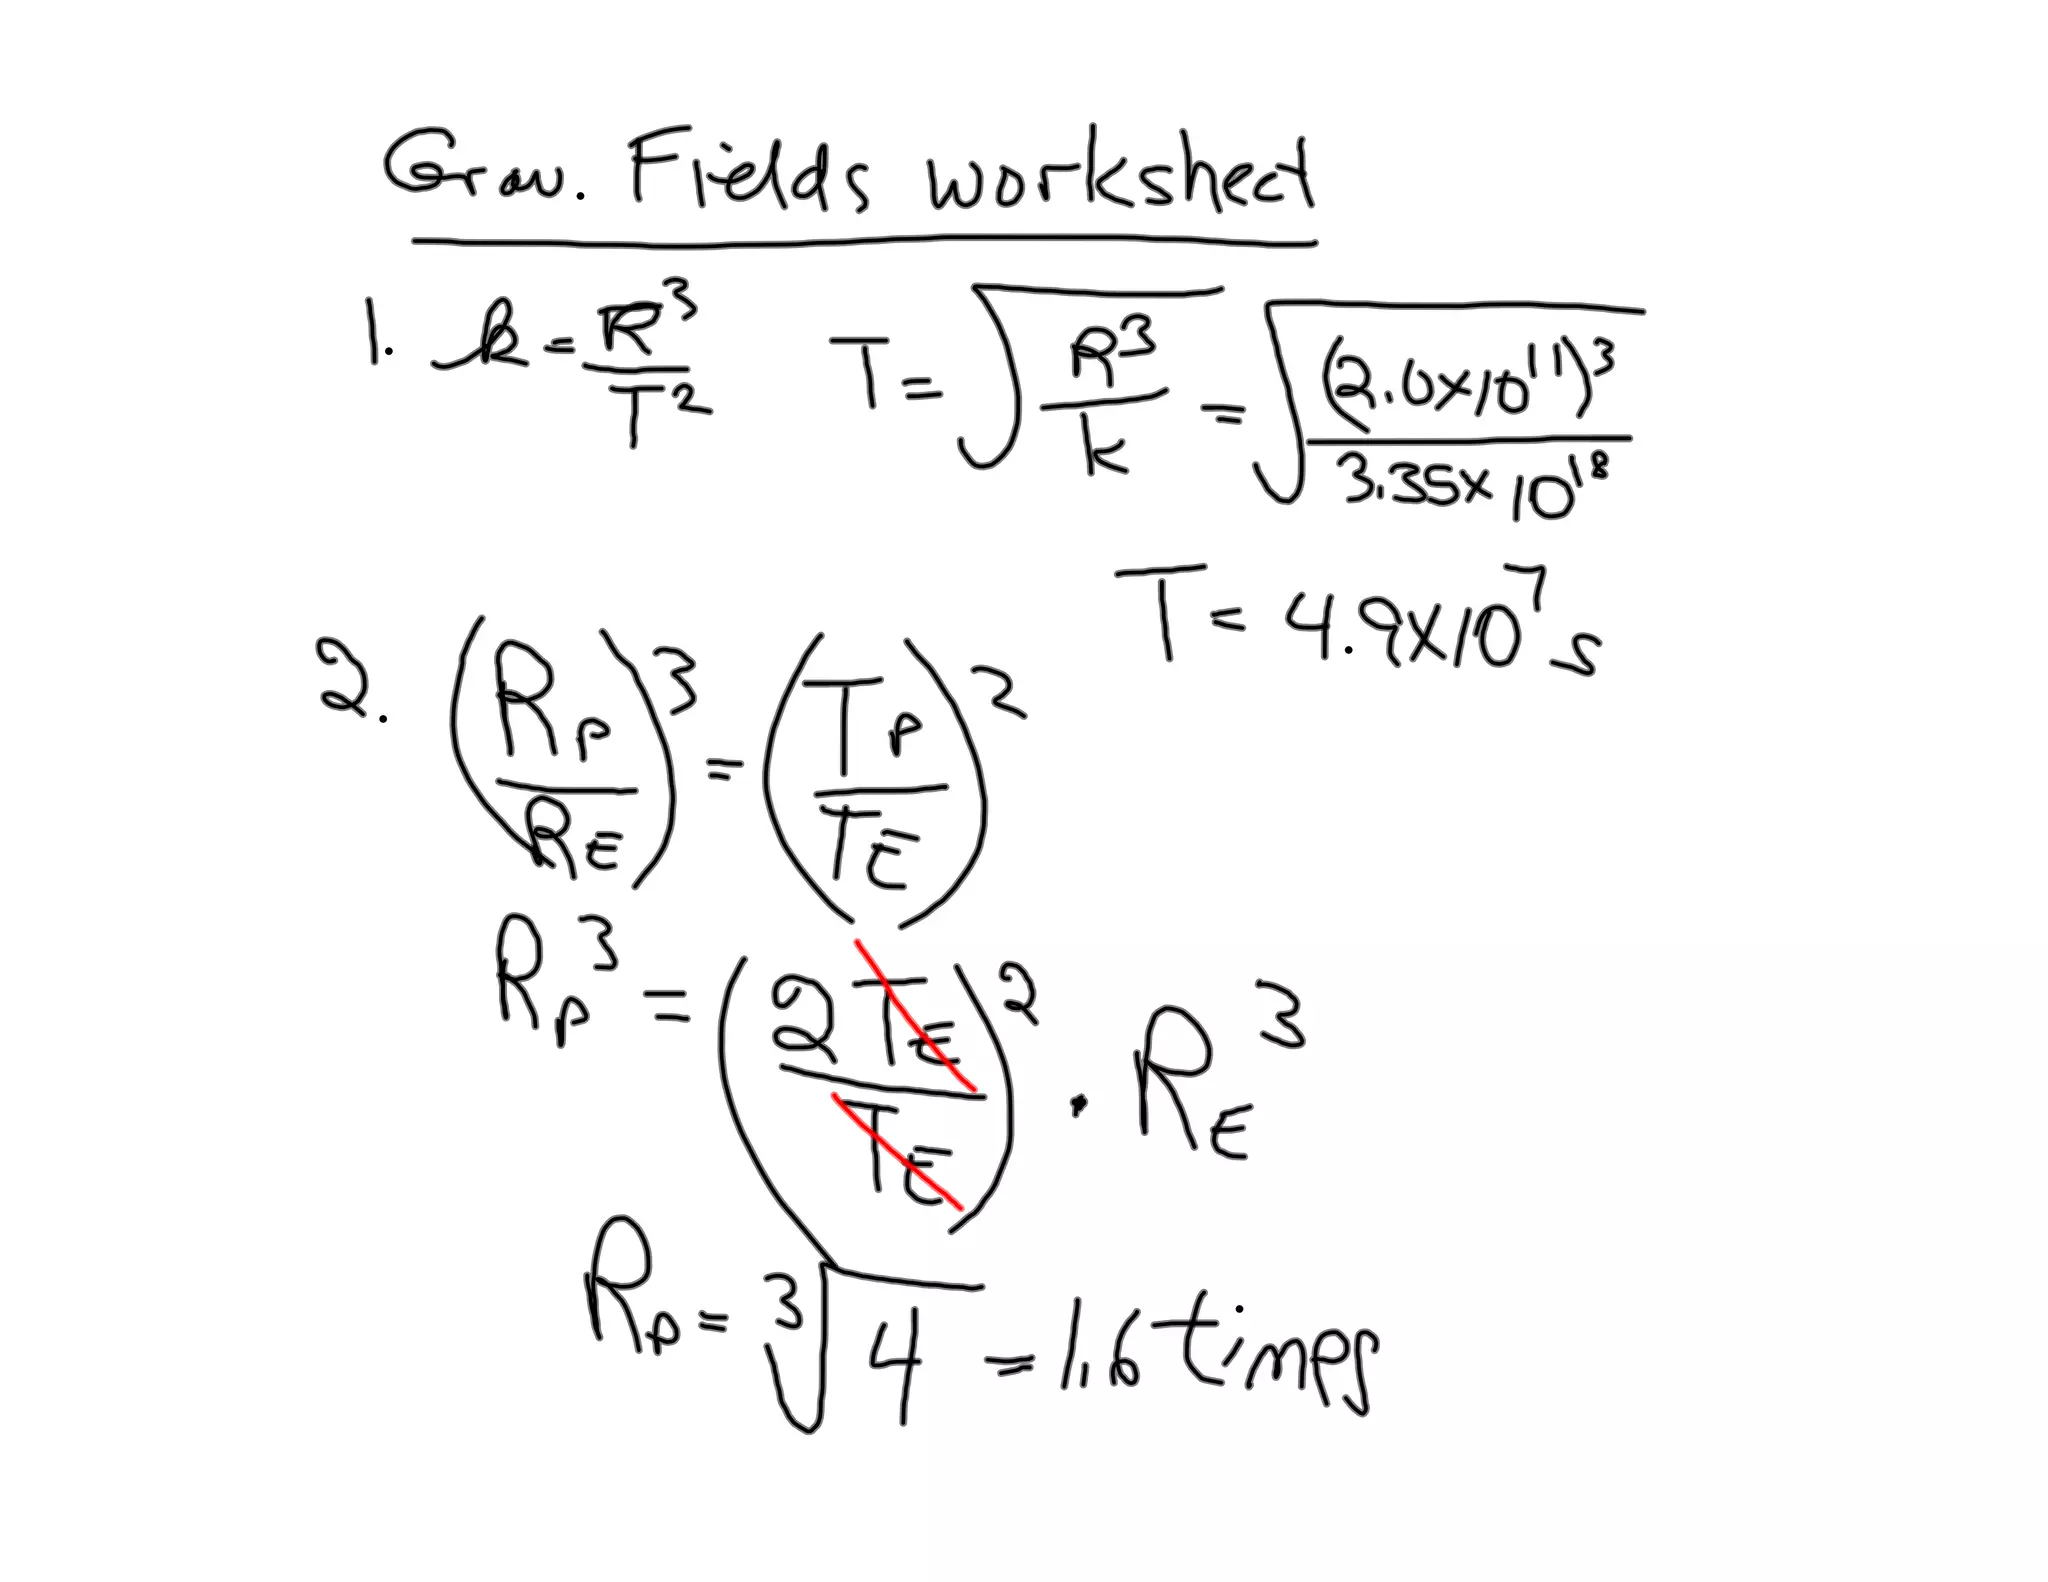 Grav. Fields worksheet
1. k = R³/T² T = √(R³/k) = √((2.0x10¹¹)³/3.35x10¹⁸)
T = 4.9x10⁷ s
2. (Rp/RE)³ = (Tp/TE)²
Rp³ = (2TE/TE)² · RE³
Rp = ³√4 = 1.6 times